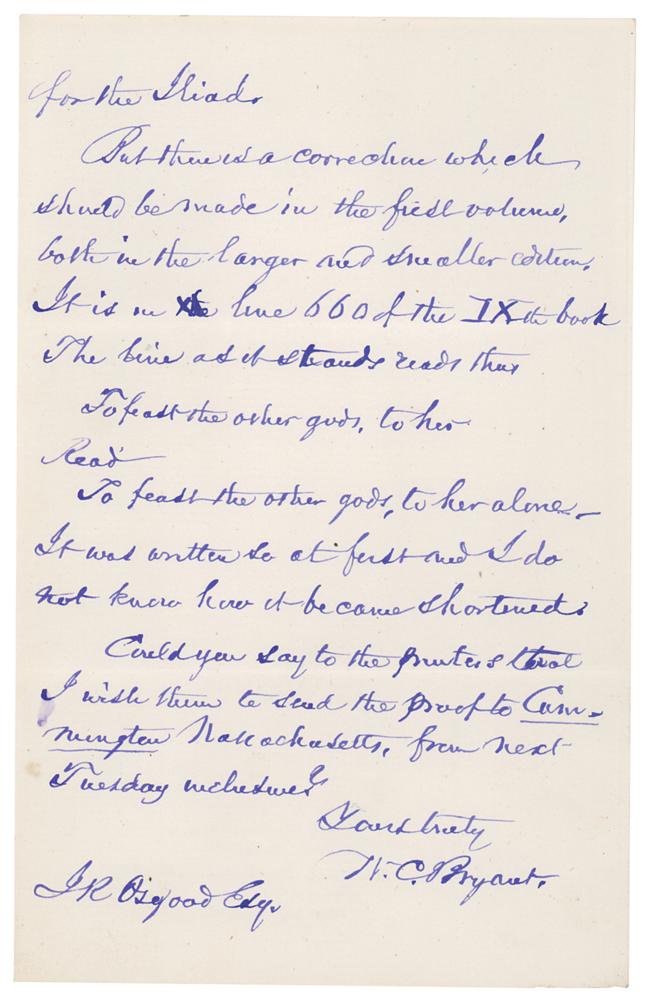 for the Iliad.
But there is a correction which
should be made in the first volume,
both in the larger and smaller edition.
It is in the line 660 of the IXth book
The line as it stands reads thus
To feast the other gods, to her
Read
To feast the other gods, to her alone—
It was written so at first and I do
not know how it became shortened.
Could you say to the printers that
I wish them to send the proof to Cum-
mington Massachusetts, from next
Tuesday inclusively
Yours truly
W. C. Bryant.
J R Osgood Esq.